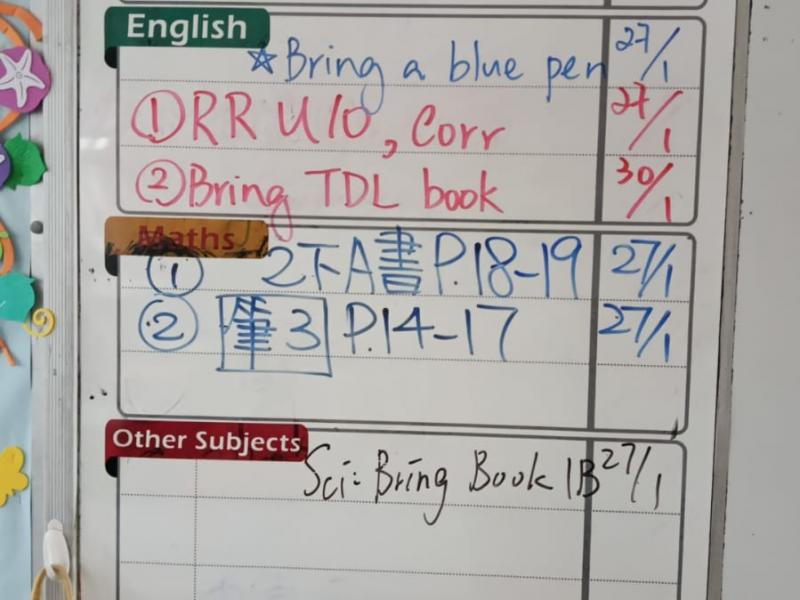 English
☆Bring a blue pen 27/1
①RR U10, Corr 27/1
②Bring TDL book 30/1
Maths
① 2下A書 P.18-19 27/1
② 筆3 P.14-17 27/1
Other Subjects
Sci: Bring Book 1B 27/1